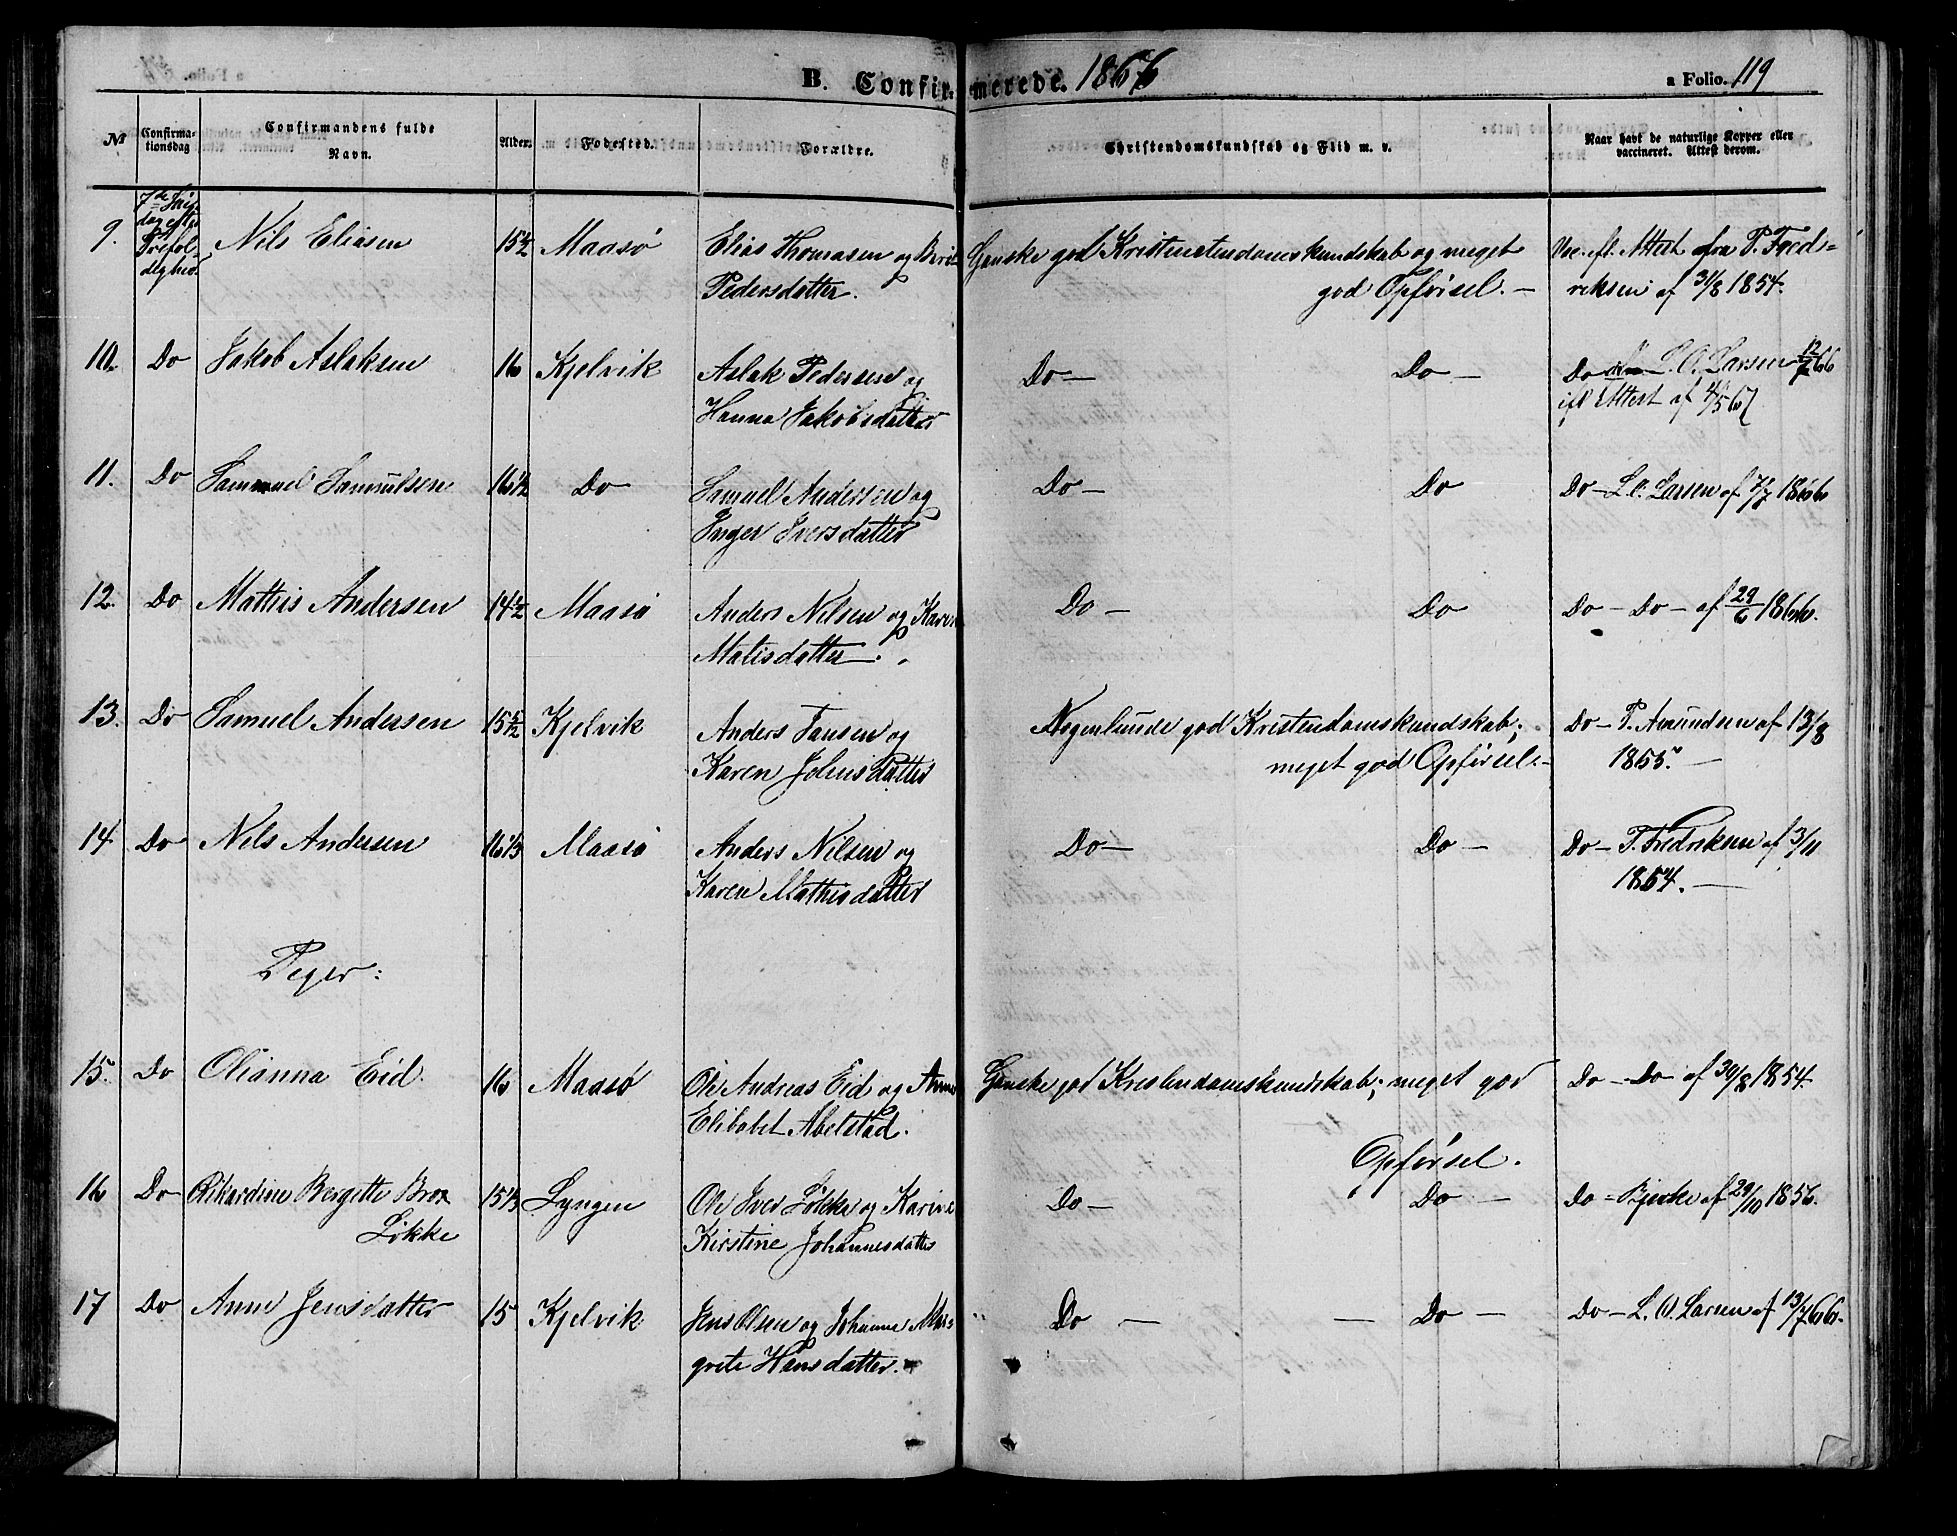 B. Confirmerede. 1866
a Folio. 119
№
Confirma-
tionsdag
Confirmandens fulde
Navn.
Alder.
Fødested.
Forældre.
Christendomskundskab og Flid m. v.
Naar havt de naturlige Kopper eller
vaccineret. Attest derom.
9. 7de Søn-
dag efter
Nils Eliasen 15½ Maasø Elias Thomasen og Berit
Pedersdatter.
Ganske god Kristenstendomskundskab og meget
god Opførsel. –
Vac. ifl. Attest fra P. Fred-
riksen af 31/8 1854.
10. Do Jakob Aslaksen 16 Kjelvik Aslak Pedersen og
Hanna Jakobsdatter
Do – Do –
Do L. O. Larsen 12/7 66
ifl Attest af 4/5 67
11. Do Sammuel Samulsen 16½ Do Samuel Andersen og
Inger Iversdatter
Do – Do
Do – L. O. Larsen af 7/7 1866
12. Do Mathis Andersen 14½ Maasø Anders Nilsen og Karen
Matisdatter.
Do – Do
Do – Do – af 29/6 1866.
13. Do Samuel Andersen Kjelvik Anders Jansen og
Karen Johnsdatter
Nogenlunde god Kristendomskundskab;
meget god Opførsel. –
Do – P. Amundsen af 13/8
1855. –
14. Do Nels Andersen 16⅓ Maasø Anders Nilsen og
Karen Mathisdatter
Do – Do –
Do – P. Fredriksen af 3/11
1854. –
Piger:
15. Do Olianna Eid 16 Maasø Ole Andreas Eid og Anne
Elibabet Abelstad.
Ganske god Kristendomskundskab; meget god
Opførsel.
Do – Do af 30/8 1854.
16 Do Rikardine Bergette Brox
Løkke
15⅓ Lyngen Ole Iver Løkke og Karine
Kirstine Johannesdatter
Do – Do –
Do – Bjerke af 29/10 1856.
17 Do Anne Jensdatter 15 Kjelvik Jens Olsen og Johanne Mar-
grete Hansdatter.
Do – – Do –
Do – L. O. Larsen af 13/7 66.